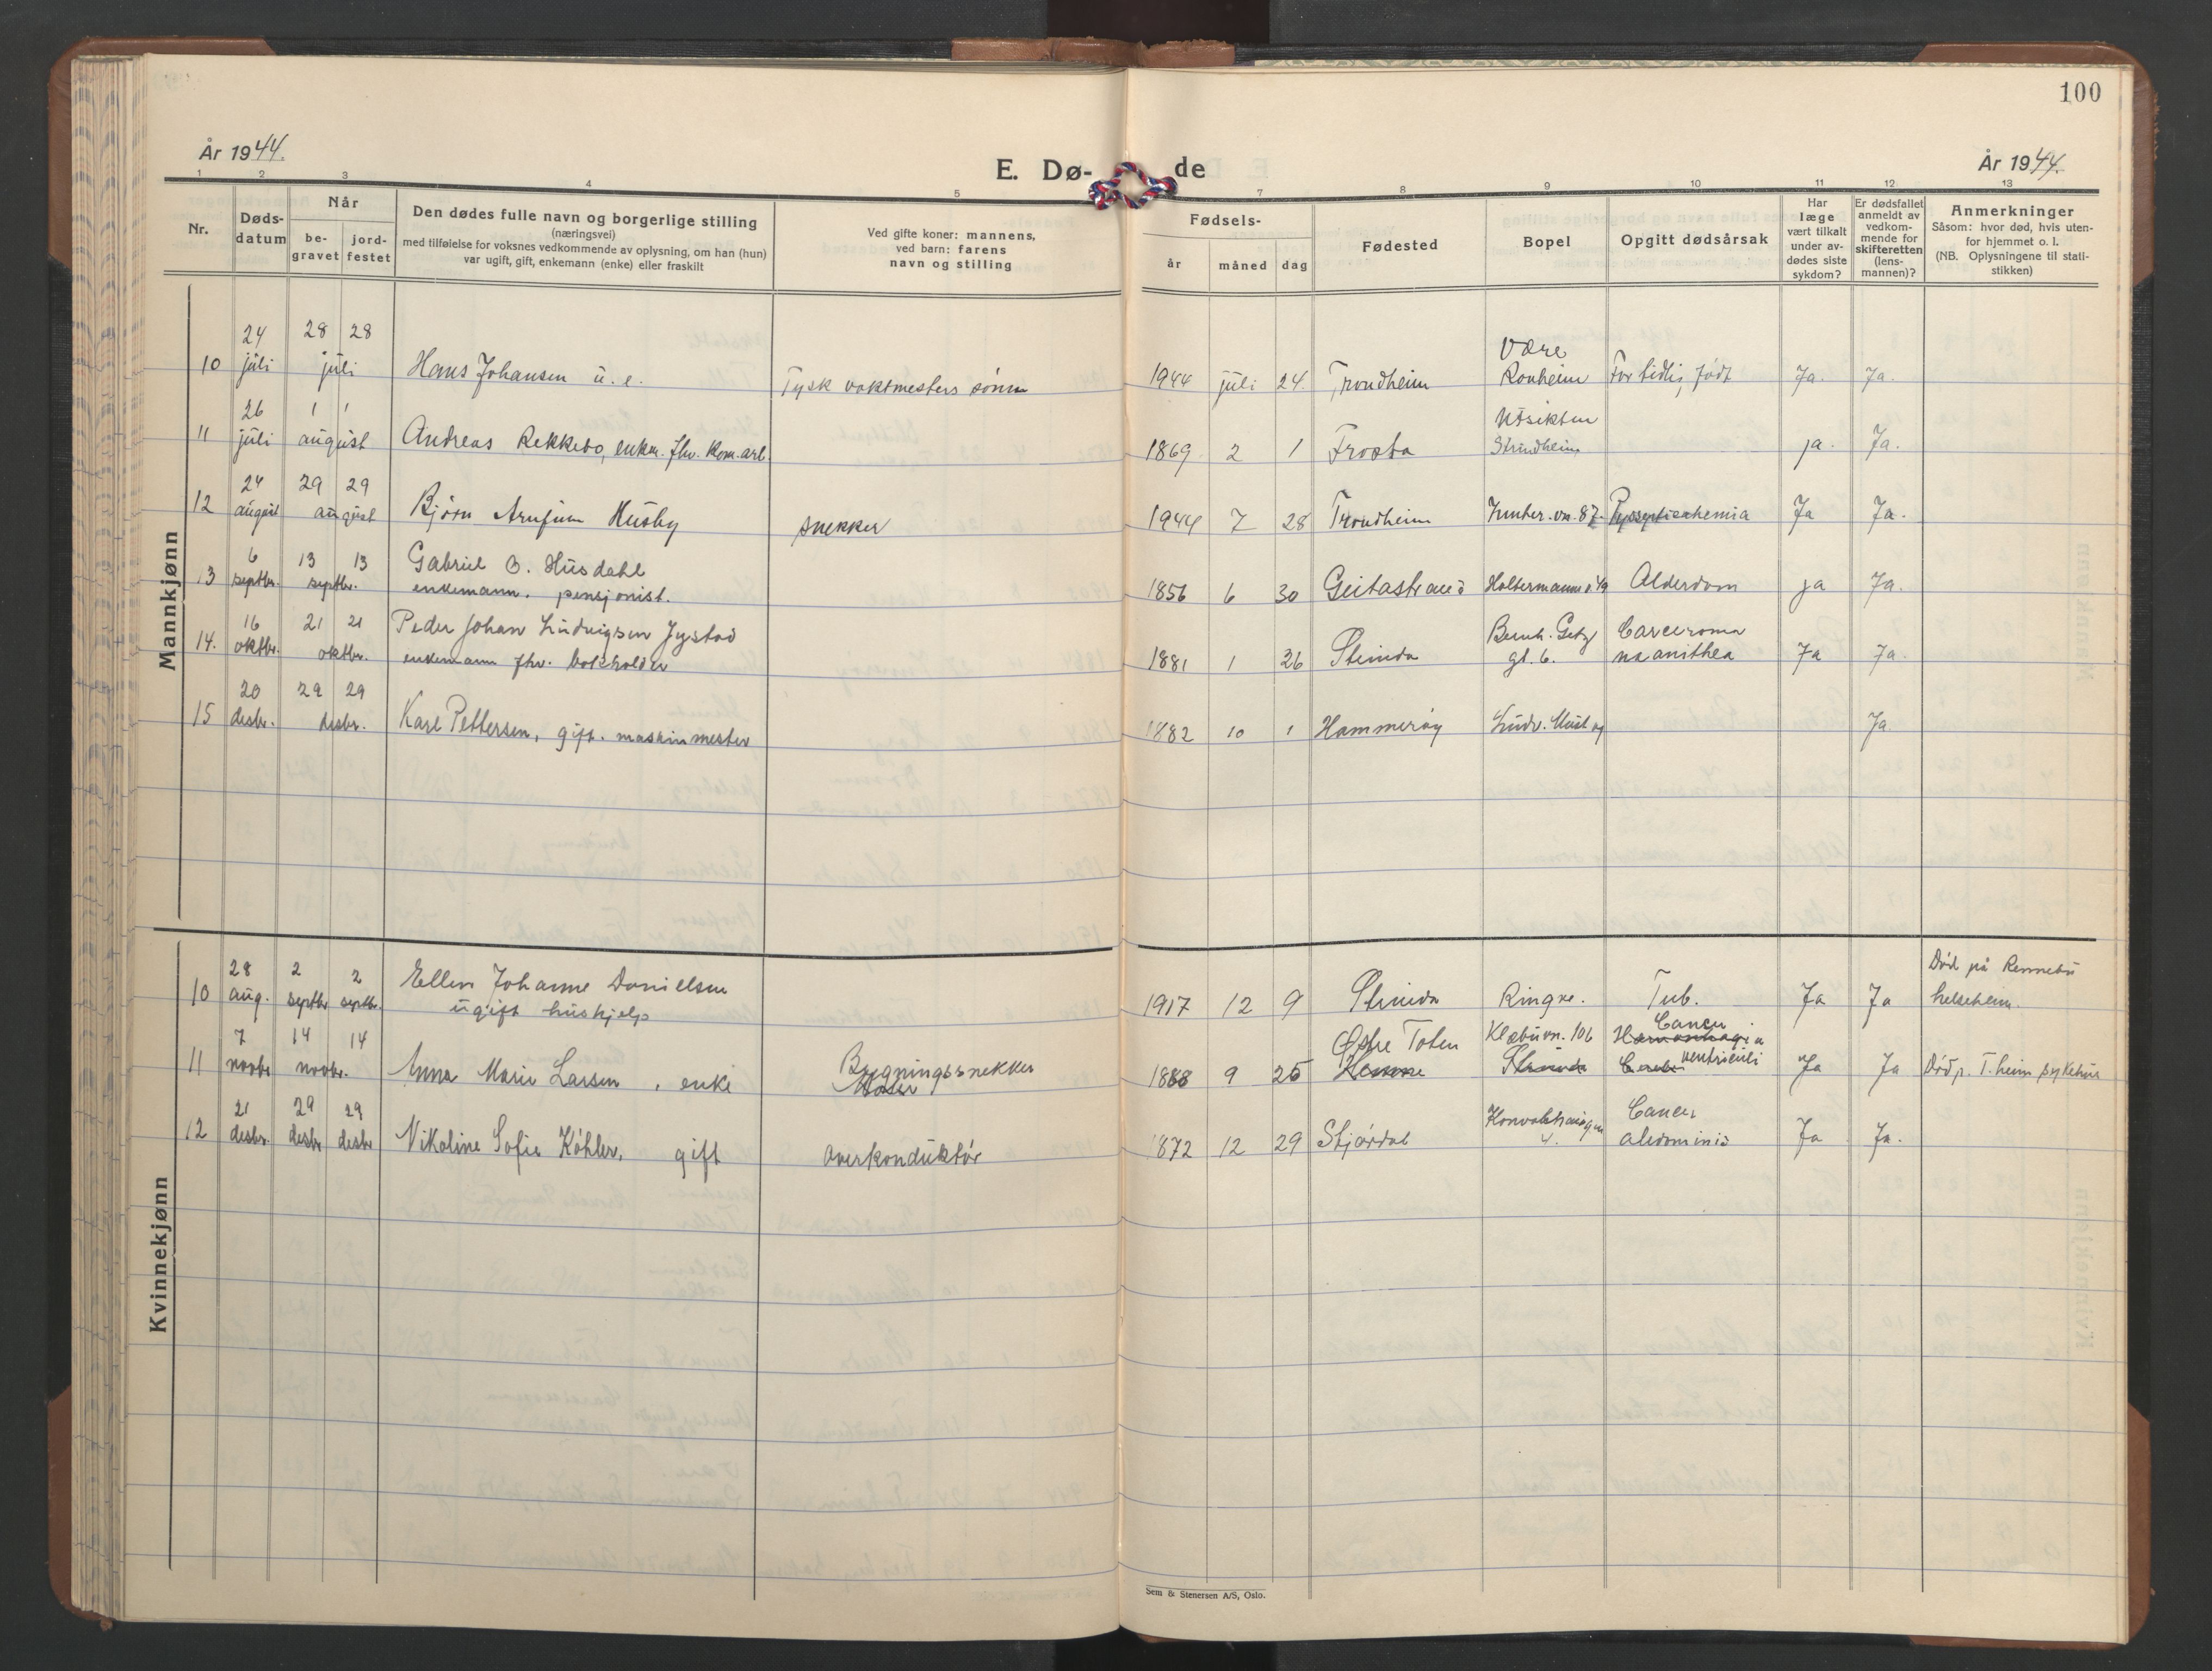 100
År 1944.
E. Dø- de
År 1944.
1 2 3 4 5 7 8 9 10 11 12 13
Nr.
Døds-
datum
Når
be-
gravet
jord-
festet
Den dødes fulle navn og borgerlige stilling
(næringsvei)
med tilføielse for voksnes vedkommende av oplysning, om han (hun)
var ugift, gift, enkemann (enke) eller fraskilt
Ved gifte koner: mannens,
ved barn: farens
navn og stilling
Fødsels-
år måned dag
Fødested
Bopel
Opgitt dødsårsak
Har
læge
vært tilkalt
under av-
dødes siste
sykdom?
Er dødsfallet
anmeldt av
vedkom-
mende for
skifteretten
(lens-
mannen)?
Anmerkninger
Såsom: hvor død, hvis uten-
for hjemmet o. l.
(NB. Oplysningene til stati-
stikken)
Mannkjønn
24 28 28 Være
10 juli juli Hans Johansen u. e. Tysk vaktmesters sønn 1944 juli 24. Trondheim Ranheim For tidlig født Ja. Ja.
26 1 1 Utsikten
11 juli august Andreas Rekkebo, enkm. fhv. kom. arb. 1869 2 1 Frosta Strindheim ja. Ja.
24 29 29
12 august august Bjørn Arnfinn Husby snekker 1944 7 28 Trondheim 87. Ja Ja.
6 13 13 Gabriel O. Husdahl
13 septbr. septbr. enkemann, pensjonist. 1856 6 30 Geitastrand Alderdom ja Ja.
16 21 21 Peder Johan Ludvigsen Jystad Bernh. Getz Carcinoma
14. oktbr. oktbr. enkemann fhv. bokholder 1881 1 26 Strinda gt. 6. Ja Ja.
20 29 29
15 desbr. desbr. Karl Pettersen, gift. maskinmester 1882 10 1 Hammerøy Ja.
Kvinnekjønn
28 2 2 Død på Rennebu
10 aug. septbr. septbr. Ellen Johanne Danielsen 1917 12 9 Strinda Ringve. Tub. Ja Ja helseheim.
ugift hushjelp
7 14 14 Østre Toten Klæbuvn. 106 Cancer
11 novbr. novbr. Anna Marie Larsen, enke Bygningssnekker 1888 9 25 Hemne Strinda ventriculi Ja Ja Død p. T.heim sykehus
21 29 29 Cancer
12 desbr. desbr. desbr. Nikoline Sofie Köhler, gift Overkonduktør 1872 12 29 Stjørdal 4. abdominis Ja Ja.
Sem & Stenersen A/S, Oslo.